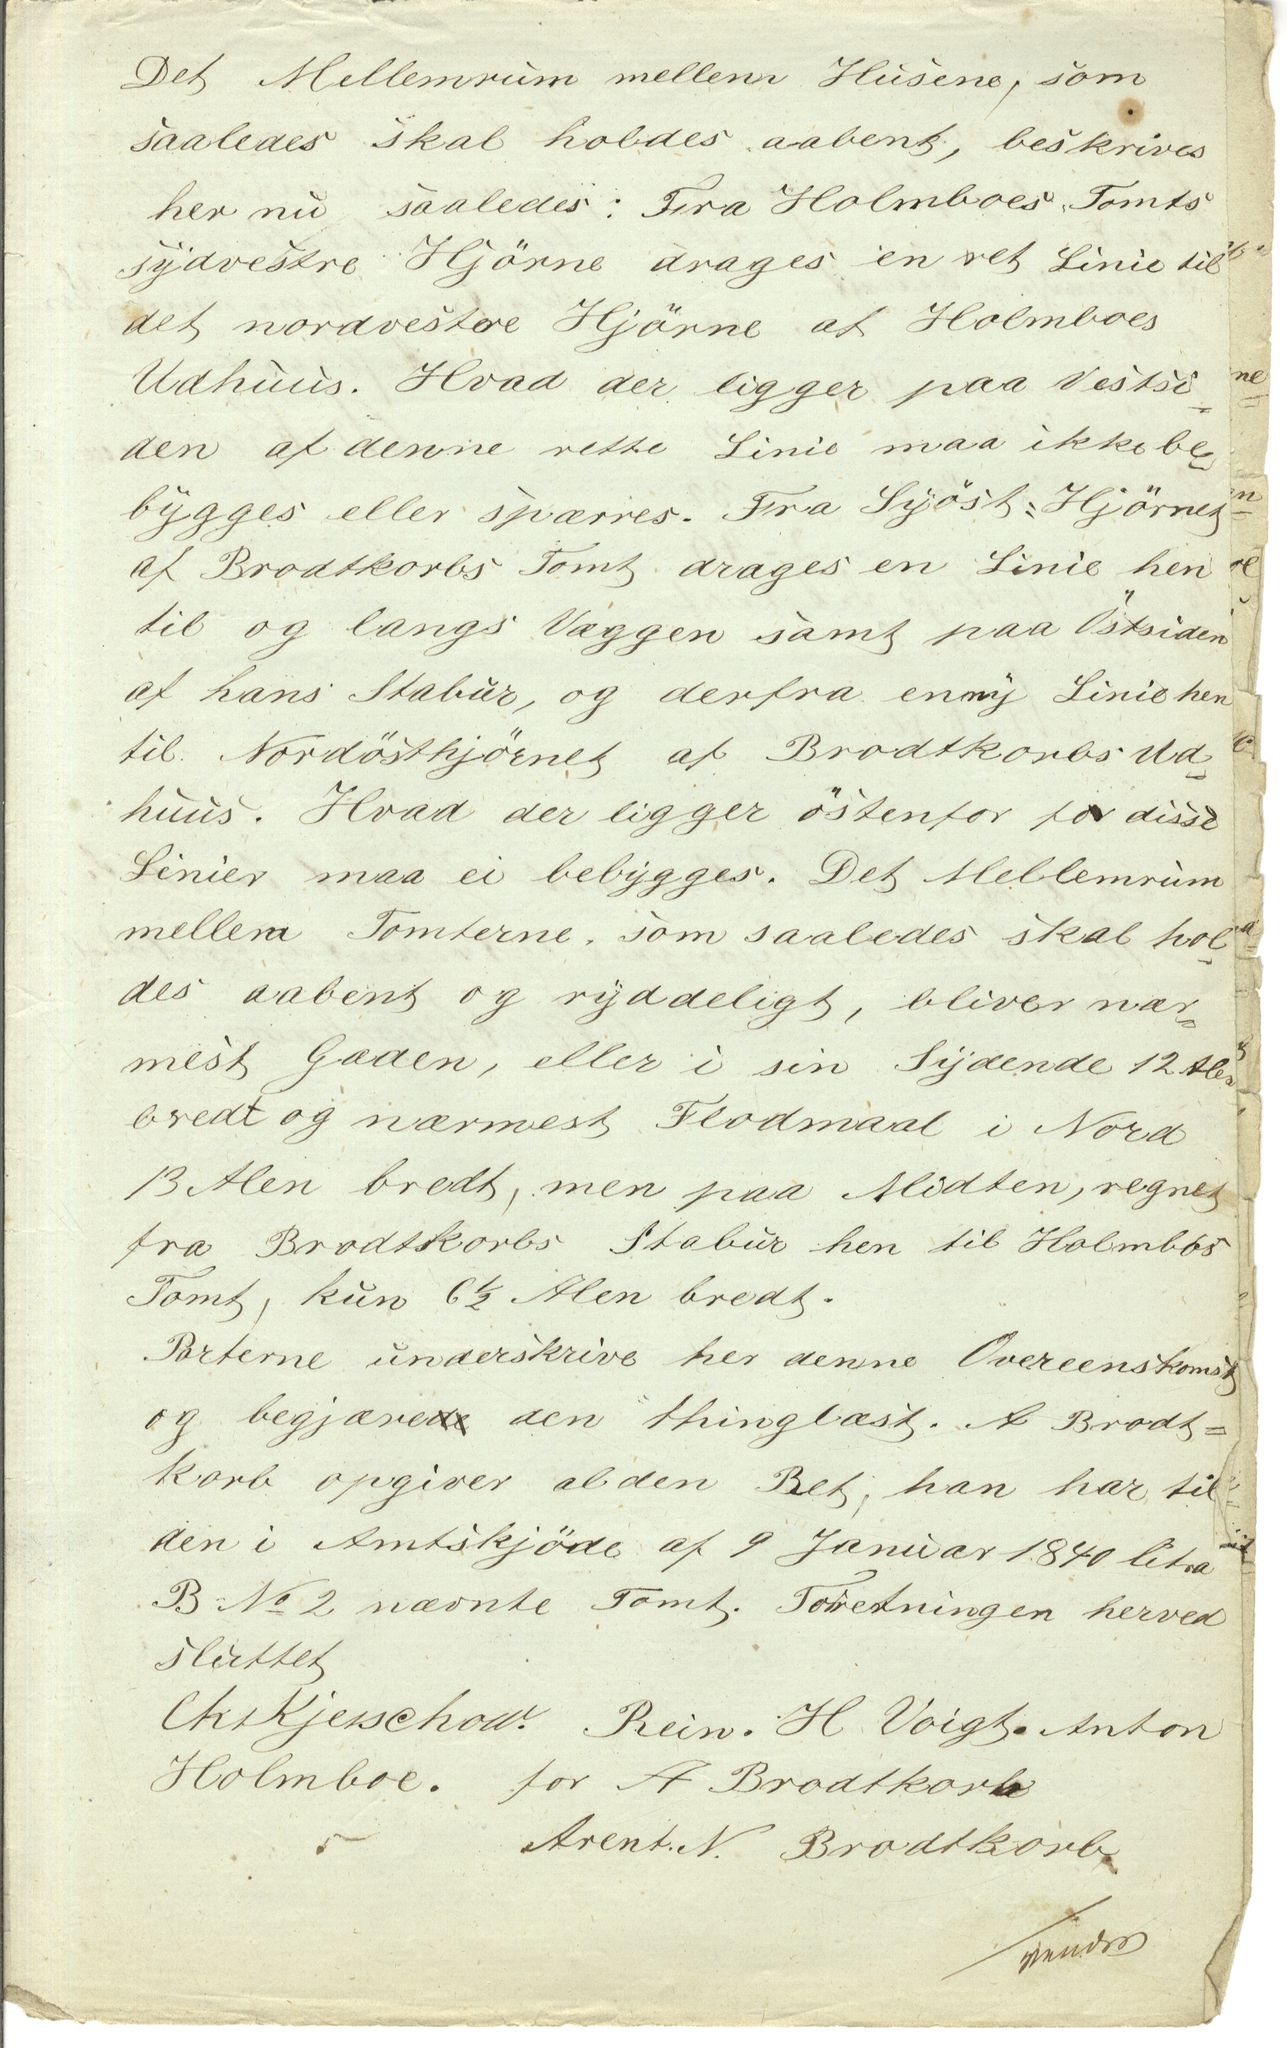 Det Mellemrum mellem Husene, som
saaledes skal holdes aabent, beskrives
her nu saaledes: Fra Holmboes Tomts
sydvestre Hjörne drages en ret Linie til
det nordvestre Hjörne af Holmboes
Udhuus. Hvad der ligger paa Vestsi-
den af denne rette Linie maa ikke be-
bygges eller spærres. Fra Syöst-Hjörnet
af Brodtkorbs Tomt drages en Linie hen
til og langs Væggen samt paa Östsiden
af hans Stabur, og derfra en ny Linie hen
til Nordösthjörnet af Brodtkorbs Ud-
huus. Hvad der ligger östenfor for disse
Linier maa ei bebygges. Det Mellemrum
mellem Tomterne, som saaledes skal hol-
des aabent og ryddeligt, bliver nær-
mest Gaden, eller i sin Sydende 12 Alen
bredt og nærmest Flodmaal i Nord
13 Alen bredt, men paa Midten, regnet
fra Brodtkorbs Stabur hen til Holmbos
Tomt, kun 6½ Alen bredt.
Parterne underskrive her denne Overeenskomst
og begjære den thinglæst. A Brodt=
korb opgiver al den Ret, han har til
den i Amtskjöde af 9 Januar 1840 litra
B No 2 nævnte Tomt. Foretningen herved
sluttet
Chr Kjerschow. Rein. H Voigt. Anton
Holmboe. for A Brodtkorb
Arent. N. Brodtkorb.